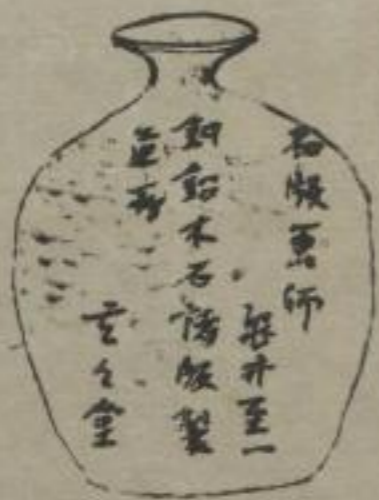 石版畫師
亀井至一
銅鉛木石諸版製
造所
玄々堂